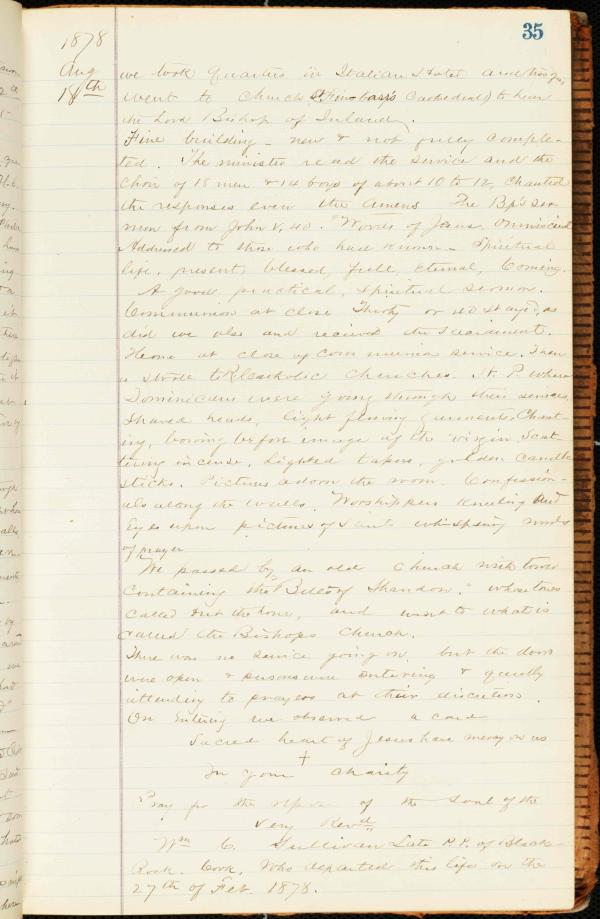 35
1878
Aug
18th
we took quarters in Italian Hotel and
went to Church St Finnbarr's Cathedral) to hear
the Lord Bishop of Ireland.
Fine building - new & not fully comple-
ted. The minister read the service and the
Choir of 18 men & 14 boys of about 10 to 12, Chanted
the responses even the Amens The Bp's ser-
mon from John V, 40. "Words of Jesus,
Addressed to those who had known - Spiritual
life, present, blessed, full, Eternal, Coming.
A good practical, spiritual sermon.
Communion at close Thirty or 40 stayed, as
did we also and recieved the Sacrament.
Home at close of Communion service. Then
a stroll to R Catholic Churches. St. P. where
Dominicans were going through their services,
Shaved heads, light flowing garments, Chant-
ing, bowing before image of the virgin, Scat-
tering incense, Lighted tapers, golden candle
sticks. Pictures adorn the room, Confession-
als along the walls. Worshippers kneeling
Eyes upon pictures of Saints whispering words
of prayer
We passed by an old Church with tower
containing the "Bells of Shandon," whose tones
called out the hour, and went to what is
called the Bishops Church.
There was no service going on, but the doors
were open & persons were entering & quietly
attending to prayers at their discretion.
On Entering we observed a card
Sacred heart of Jesus have mercy on us
†
In your Charity
Pray for the repose of the Soul of the
Very Revd
Wm C. Sullivan Late P.P. of Black-
Rock. Cork, Who departed this life on the
27th of Feb. 1878.